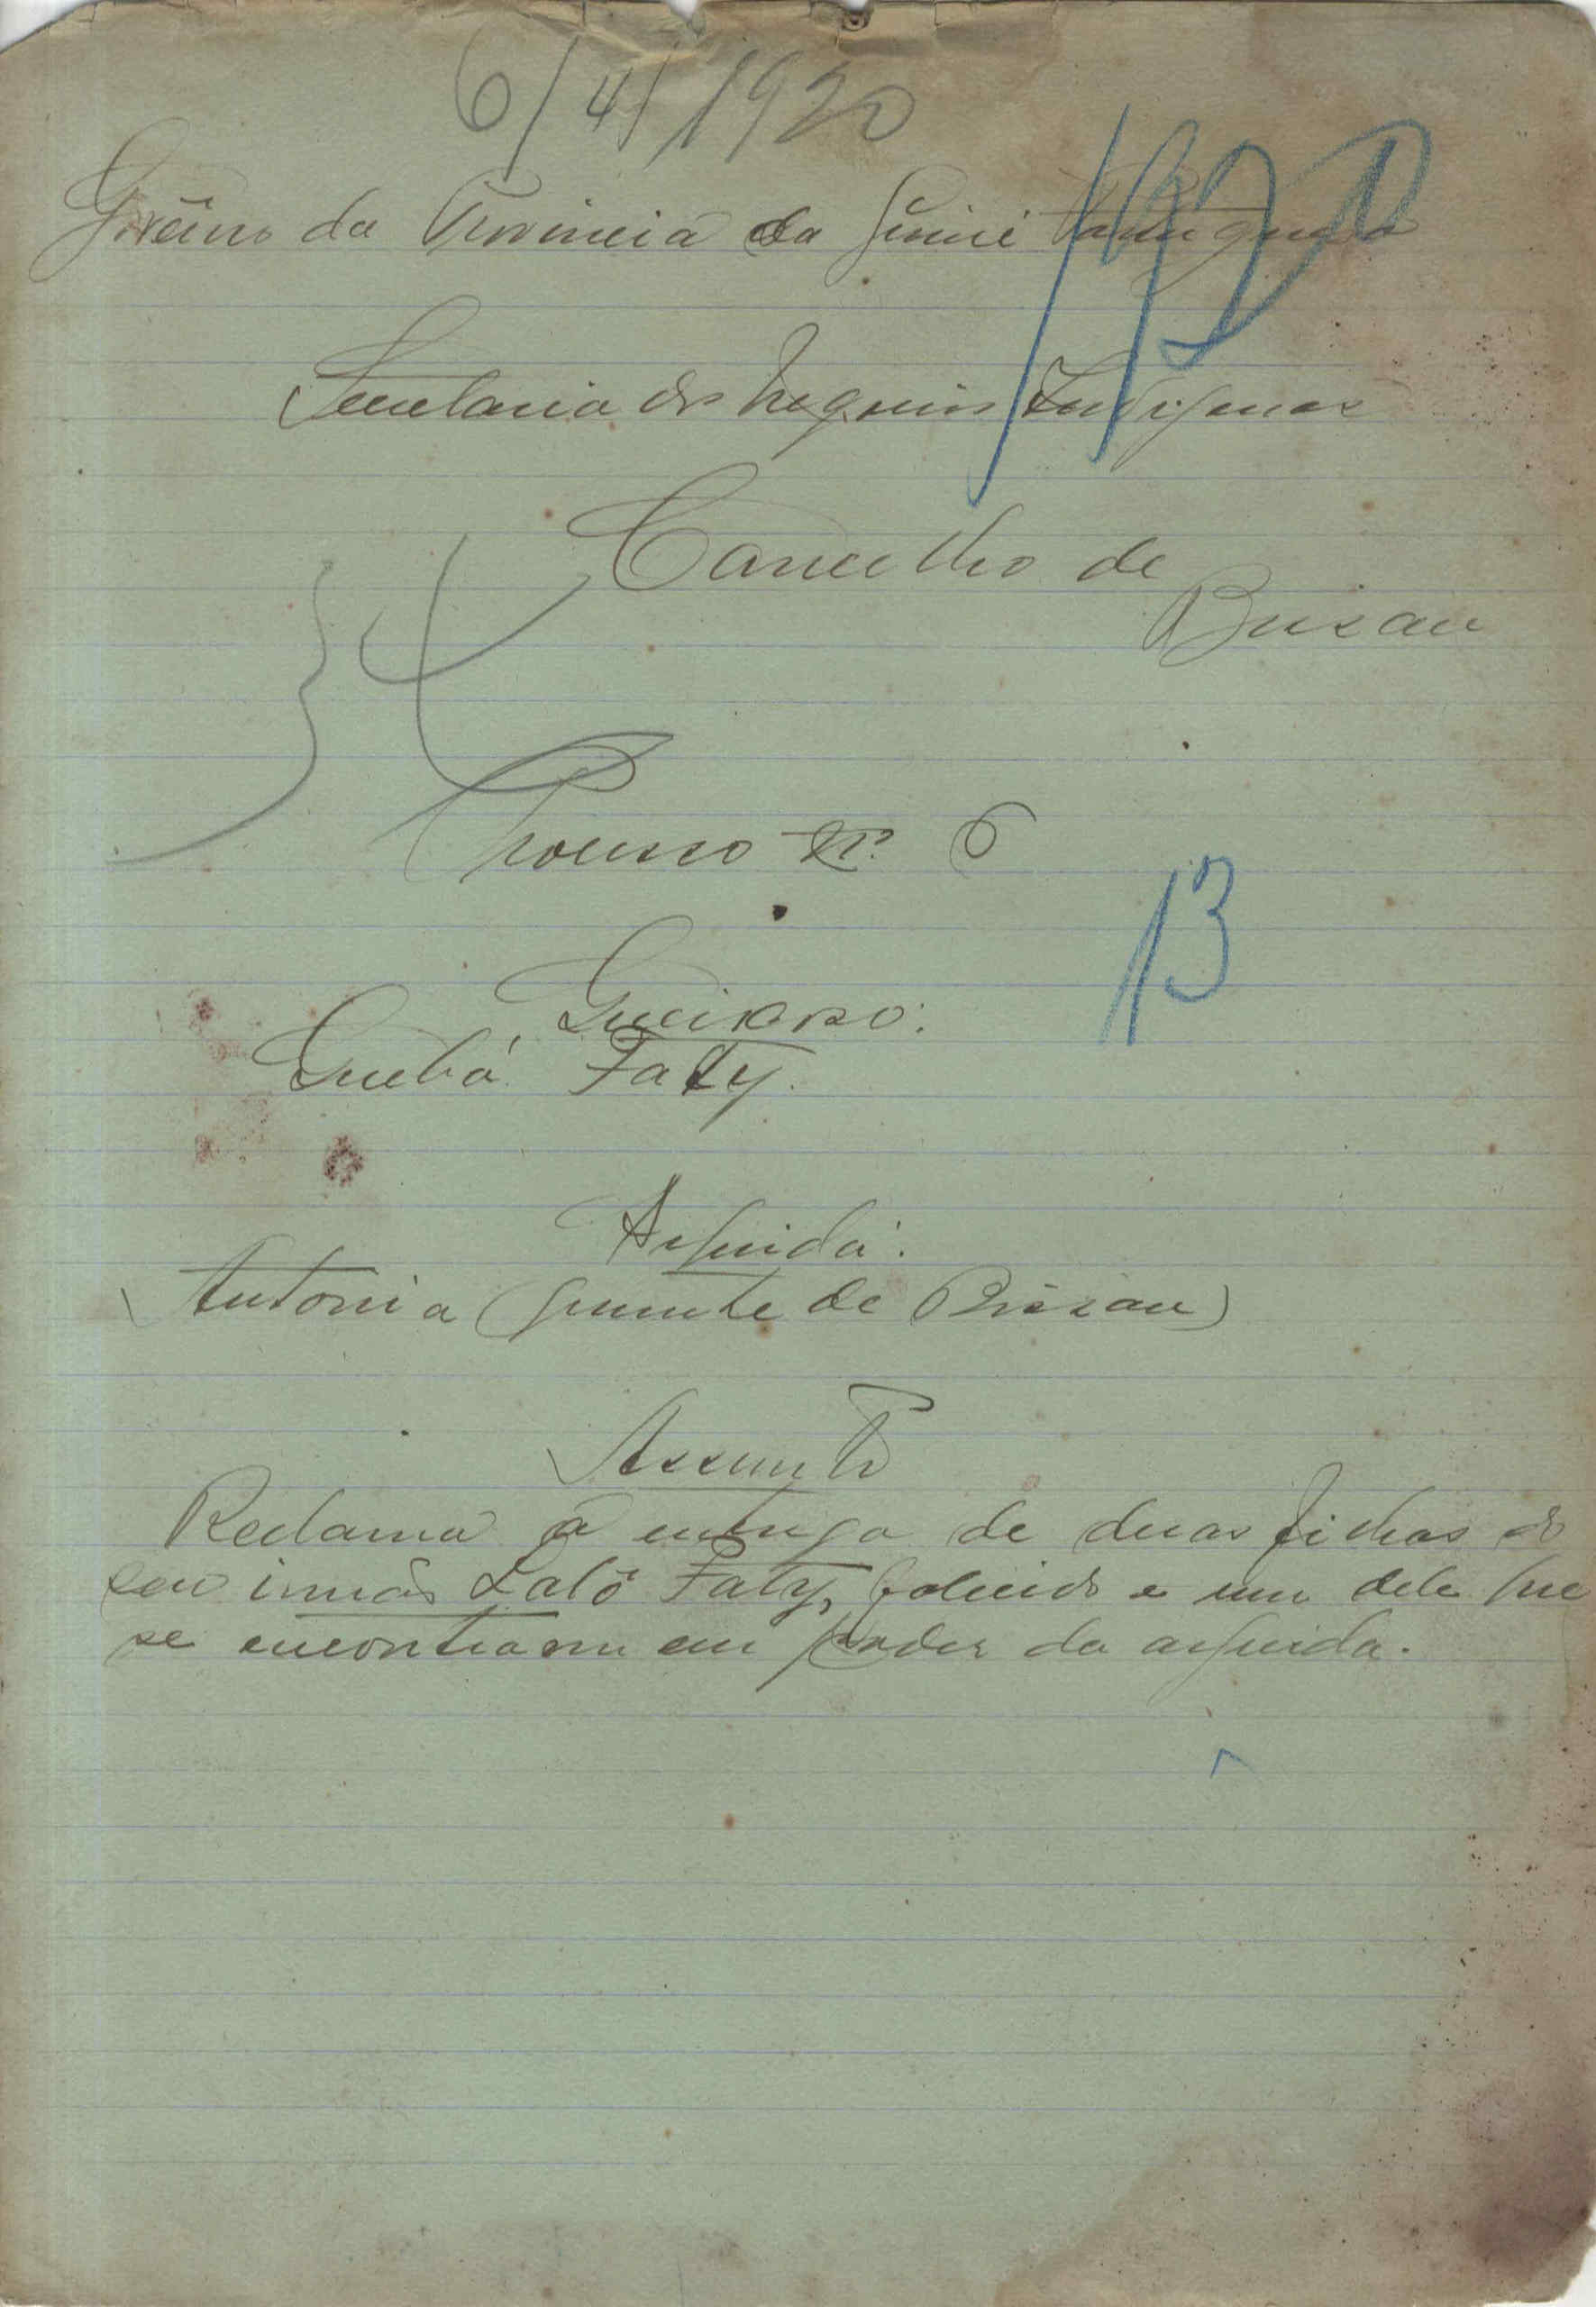 6/4/1920
1920
Govêrno da Provincia da Guiné Portuguesa
Secretaria dos Negocios Indigenas
Concelho de
Bissau
Processo Nº 6
13
Queixoso:
Faty.
Arguida:
Antonia (grumete de Bissau)
Assunto
Reclama a entrega de duas fichas do
seu irmão Laló Faty, falecido e um dele que
se encontram em poder da arguida.